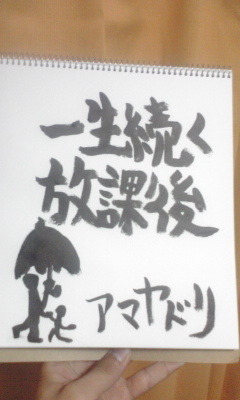 一生続く
放課後
アマヤドリ